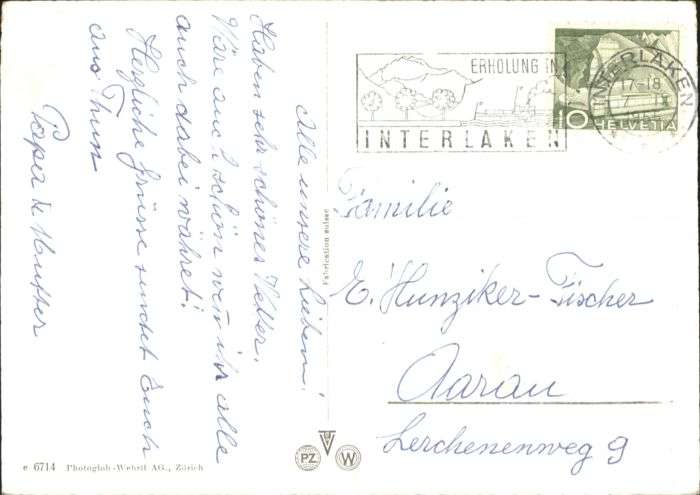 Alle unsere Lieben!
Haben sehr schönes Wetter.
Wäre auch schön wen ihr alle
auch dabei währet!
Herzliche Grüsse sendet Euch
aus Thun
Papa & Mutter
ERHOLUNG IN
INTERLAKEN
INTERLAKEN
17-18
10 HELVETIA
Fabrication suisse
Familie
E. Hunziker-Fischer
Aarau
Lerchenenweg 9
e 6714 Photoglob-Wehrli AG., Zürich
PZ
W